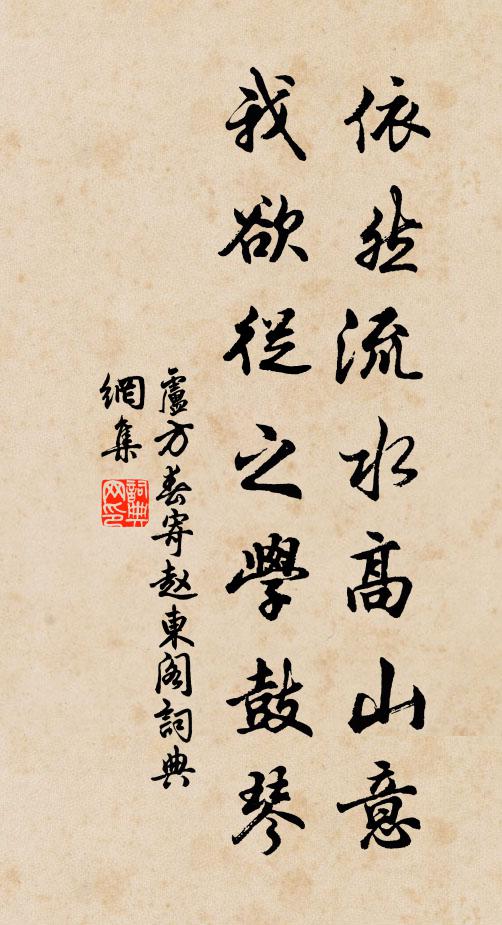 依然流水高山意
我欲從之學鼓琴
盧方春寄赵東阁詞典
網集
詞典
网印